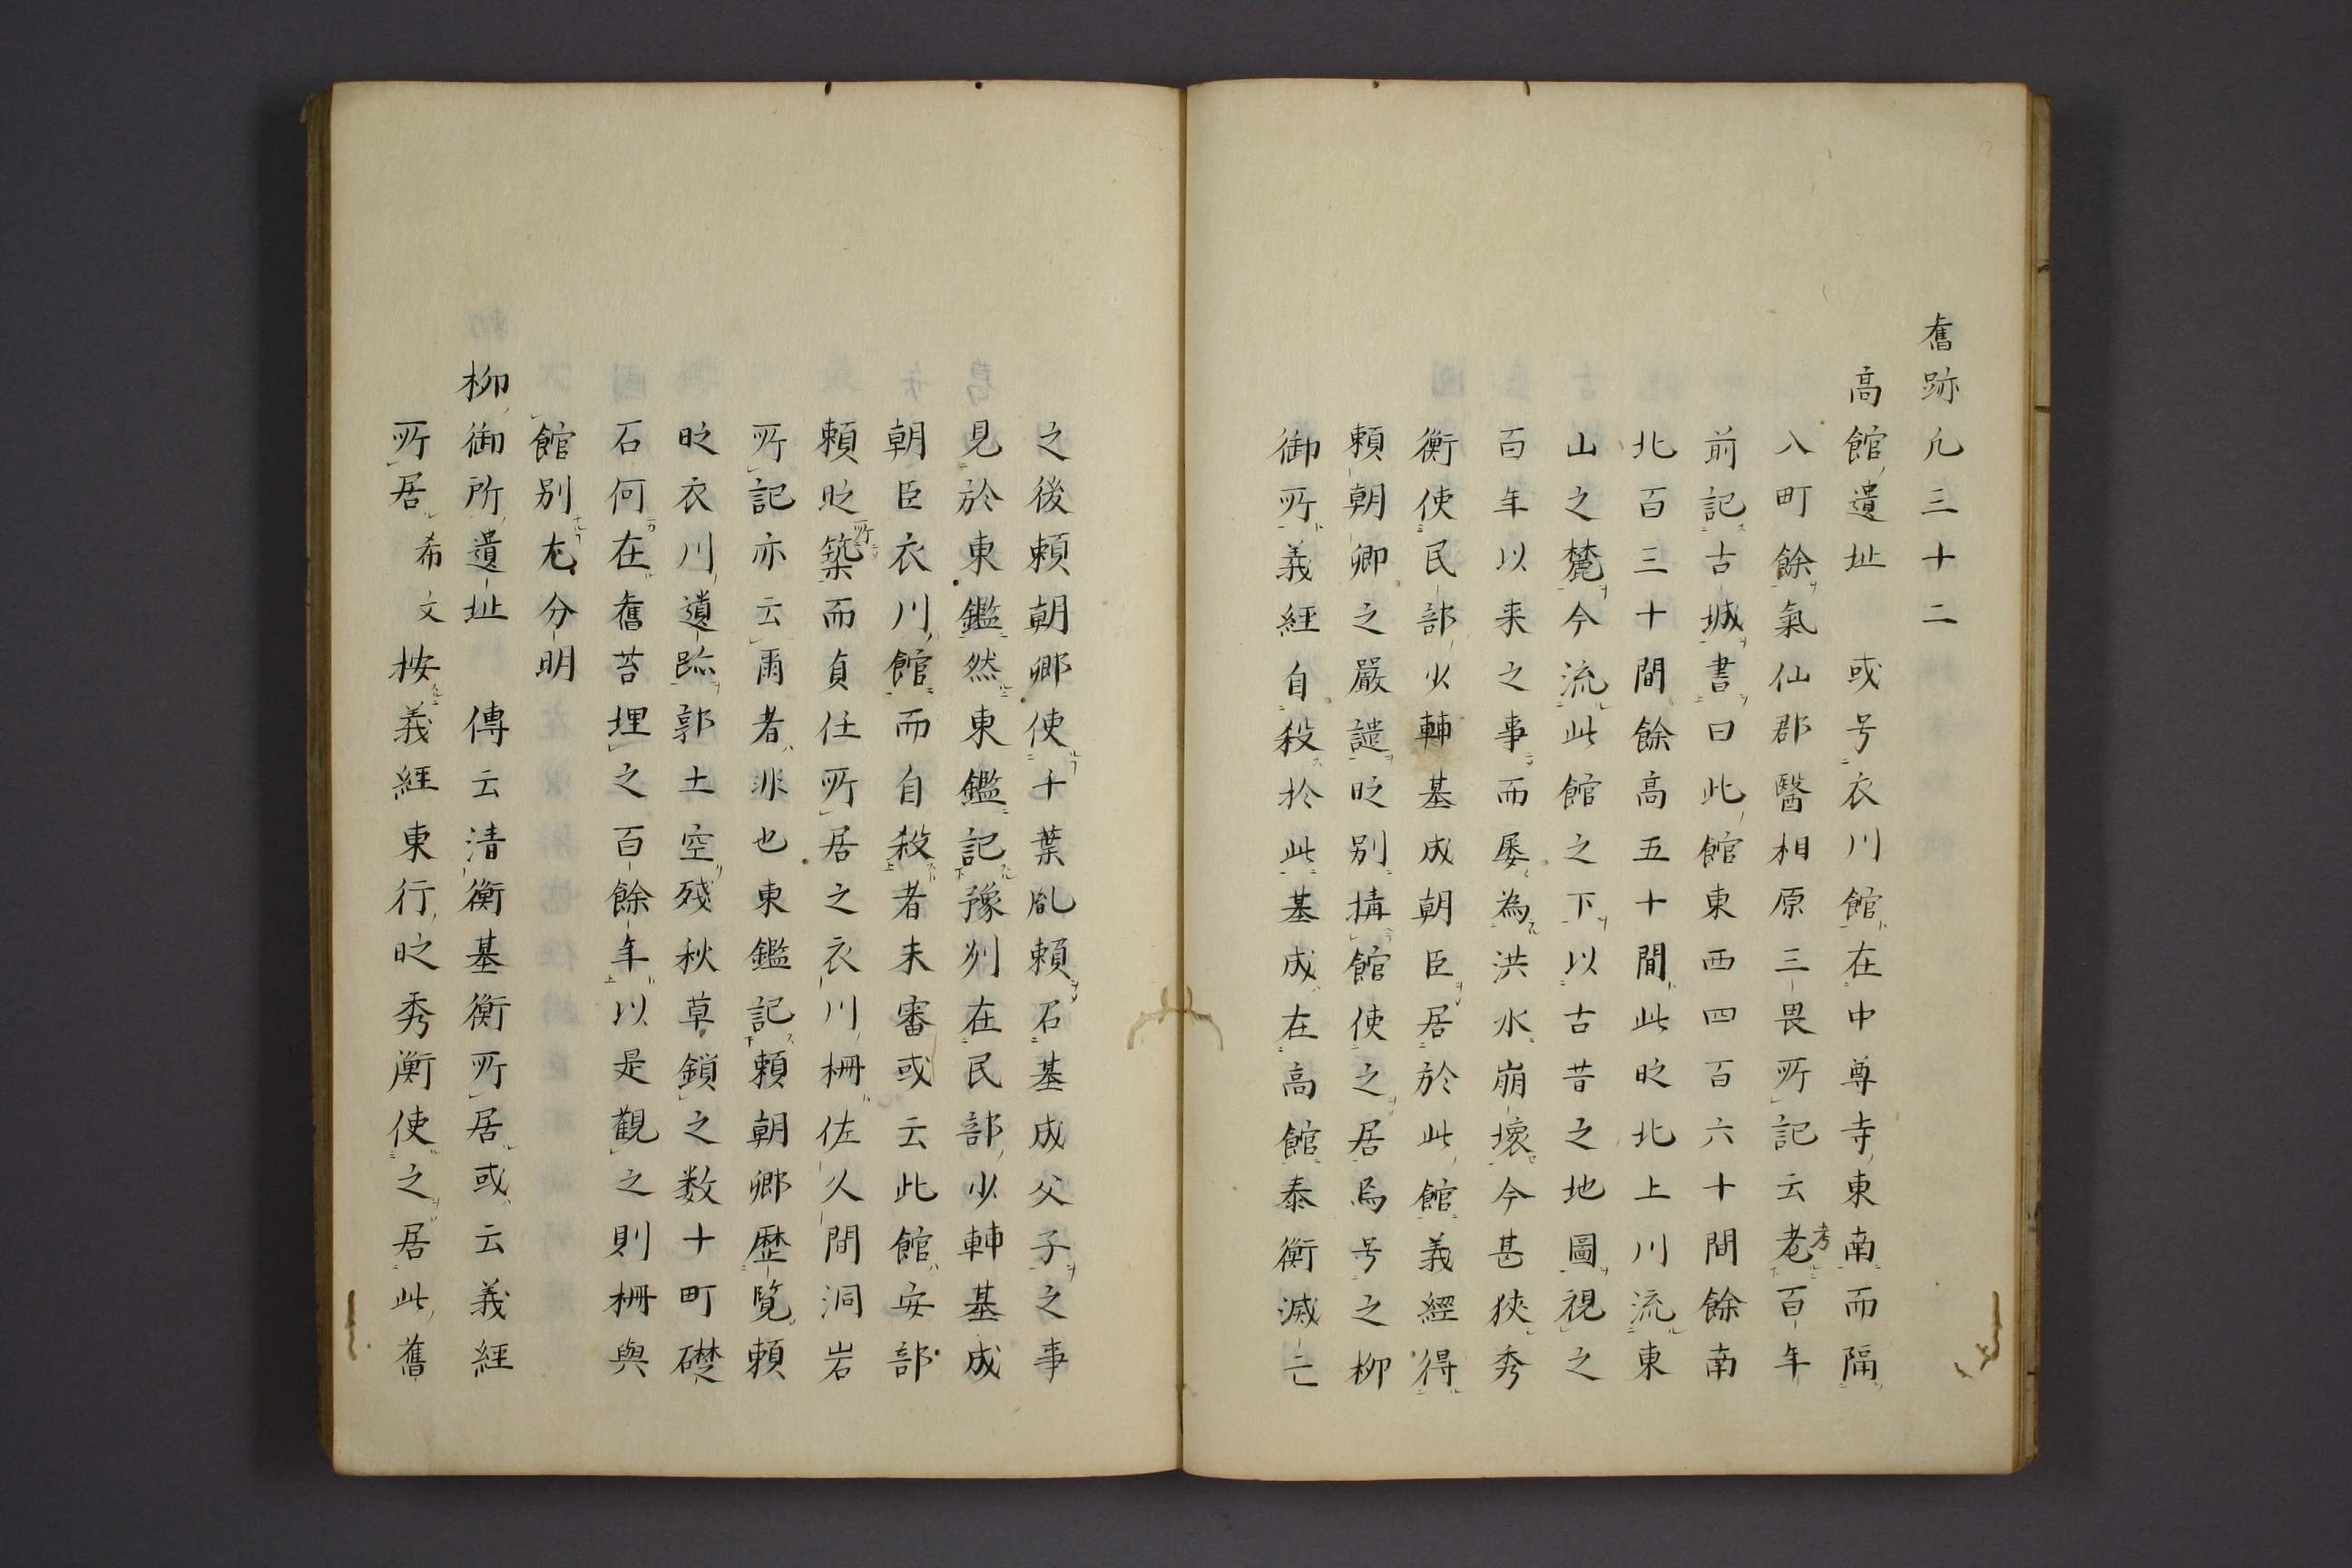 舊跡凢三十二
高館遺址　或号衣川館在中尊寺東南而隔
八町餘氣仙郡醫相原三畏所記云老百年
前記古城書曰此館東西四百六十間餘南
北百三十間餘高五十間此时北上川流東
山之麓今流此館之下以古昔之地圖視之
百年以来之事而屡為洪水崩壞今甚狹秀
衡使民部少輔基成朝臣居於此館義經得
頼朝卿之嚴譴时別搆館使之居焉号之柳
御所義経自殺於此基成在高館泰衡滅亡
之後頼朝卿使千葉胤頼召基成父子之事
見於東鑑然東鑑記豫刕在民部少輔基成
朝臣衣川館而自殺者未審或云此館安部
頼时築而貞任所居之衣川柵佐久間洞岩
所記亦云爾者非也東鑑記頼朝卿歴覧頼
时衣川遺跡郭土空殘秋草鎖之数十町礎
石何在舊苔埋之百餘年以是觀之則柵與
館別尤分明
柳御所遺址　傳云清衡基衡所居或云義経
所居希文按義経東行时秀衡使之居此舊